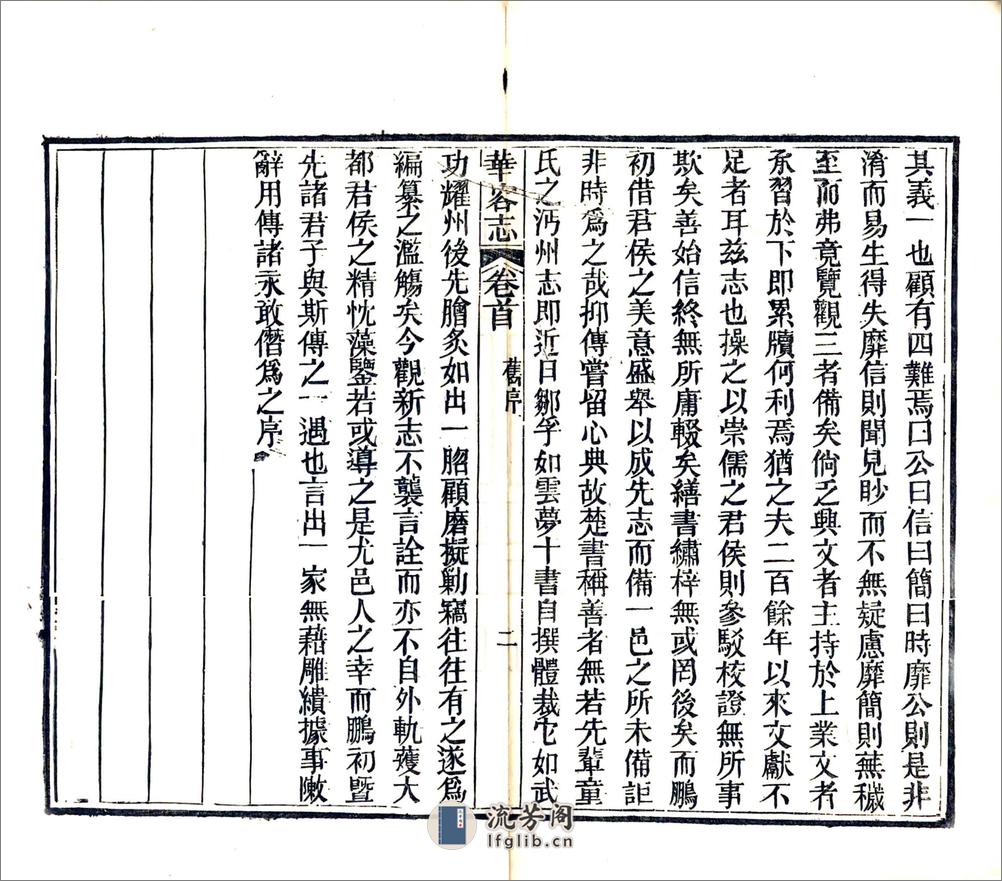 其義一也顧有四難焉曰公曰信曰簡曰時靡公則是非
淆而易生得失靡信則聞見眇而不無疑慮靡簡則蕪穢
至而弗竟覽觀三者備矣倘乏興文者主持於上業文者
承習於下即累牘何利焉猶之夫二百餘年以來文獻不
足者耳兹志也操之以崇儒之君侯則參駁校證無所事
欺矣善始信終無所庸輟矣繕書繡梓無或罔後矣而鵬
初借君侯之美意盛舉以成先志而備一邑之所未備詎
非時爲之哉抑傳嘗留心典故楚書稱善者無若先輩童
氏之沔州志即近日鄒孚如雲夢十書自撰體裁它如武
華容志 卷首 舊序 二
功耀州後先膾炙如出一腔顧磨擬勦竊往往有之遂爲
編纂之濫觴矣今觀新志不襲言詮而亦不自外軌矱大
都君侯之精忱藻鑒若或導之是尤邑人之幸而鵬初暨
先諸君子與斯傳之一遇也言出一家無藉雕繢據事敶
辭用傳諸永敢僭爲之序
流芳阁
lfglib.cn